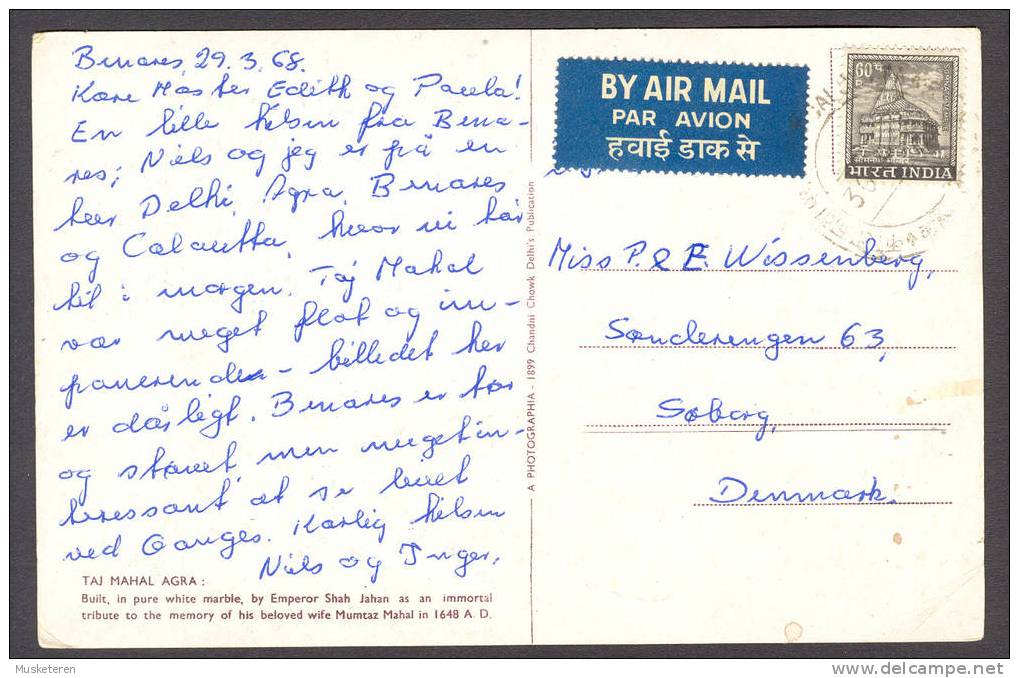 Benares 29.3.68.
Kære Moster Edith og Paula!
En lille hilsen fra Bena-
res; Niels og jeg er på en
tur Delhi, Agra, Benares
og Calcutta, hvor vi tar
til i morgen. Taj Mahal
var meget flot og im-
ponerende - billedet her
er dårligt. Benares er tør
og støvet men meget in-
teressant at se livet
ved Ganges. Kærlig hilsen
Niels og Inger.
TAJ MAHAL AGRA :
Built, in pure white marble, by Emperor Shah Jahan as an immortal
tribute to the memory of his beloved wife Mumtaz Mahal in 1648 A. D.
A PHOTOGRAPHIA - 1899 Chandni Chowk Delhi's Publication
BY AIR MAIL
PAR AVION
हवाई डाक से
60 प
सोमनाथ मन्दिर
भारत INDIA
30
Miss P. & E. Wissenberg,
Sønderengen 63,
Søborg,
Denmark.
Musketeren
http://www.delcampe.net